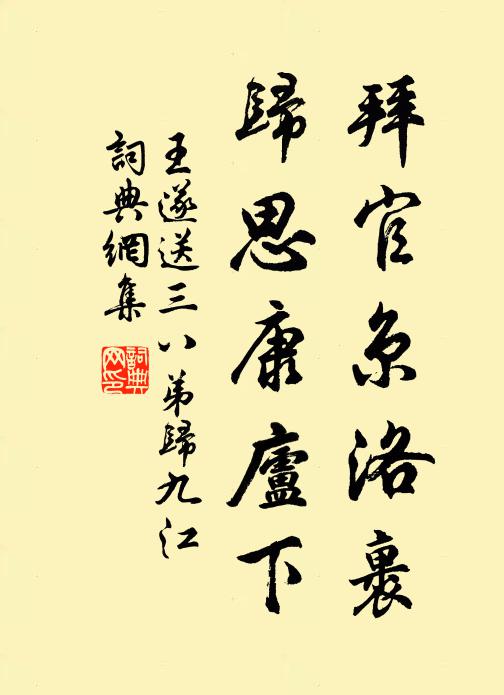 拜官京洛裏
歸思康廬下
王遂送三八弟歸九江
詞典網集
詞典網印